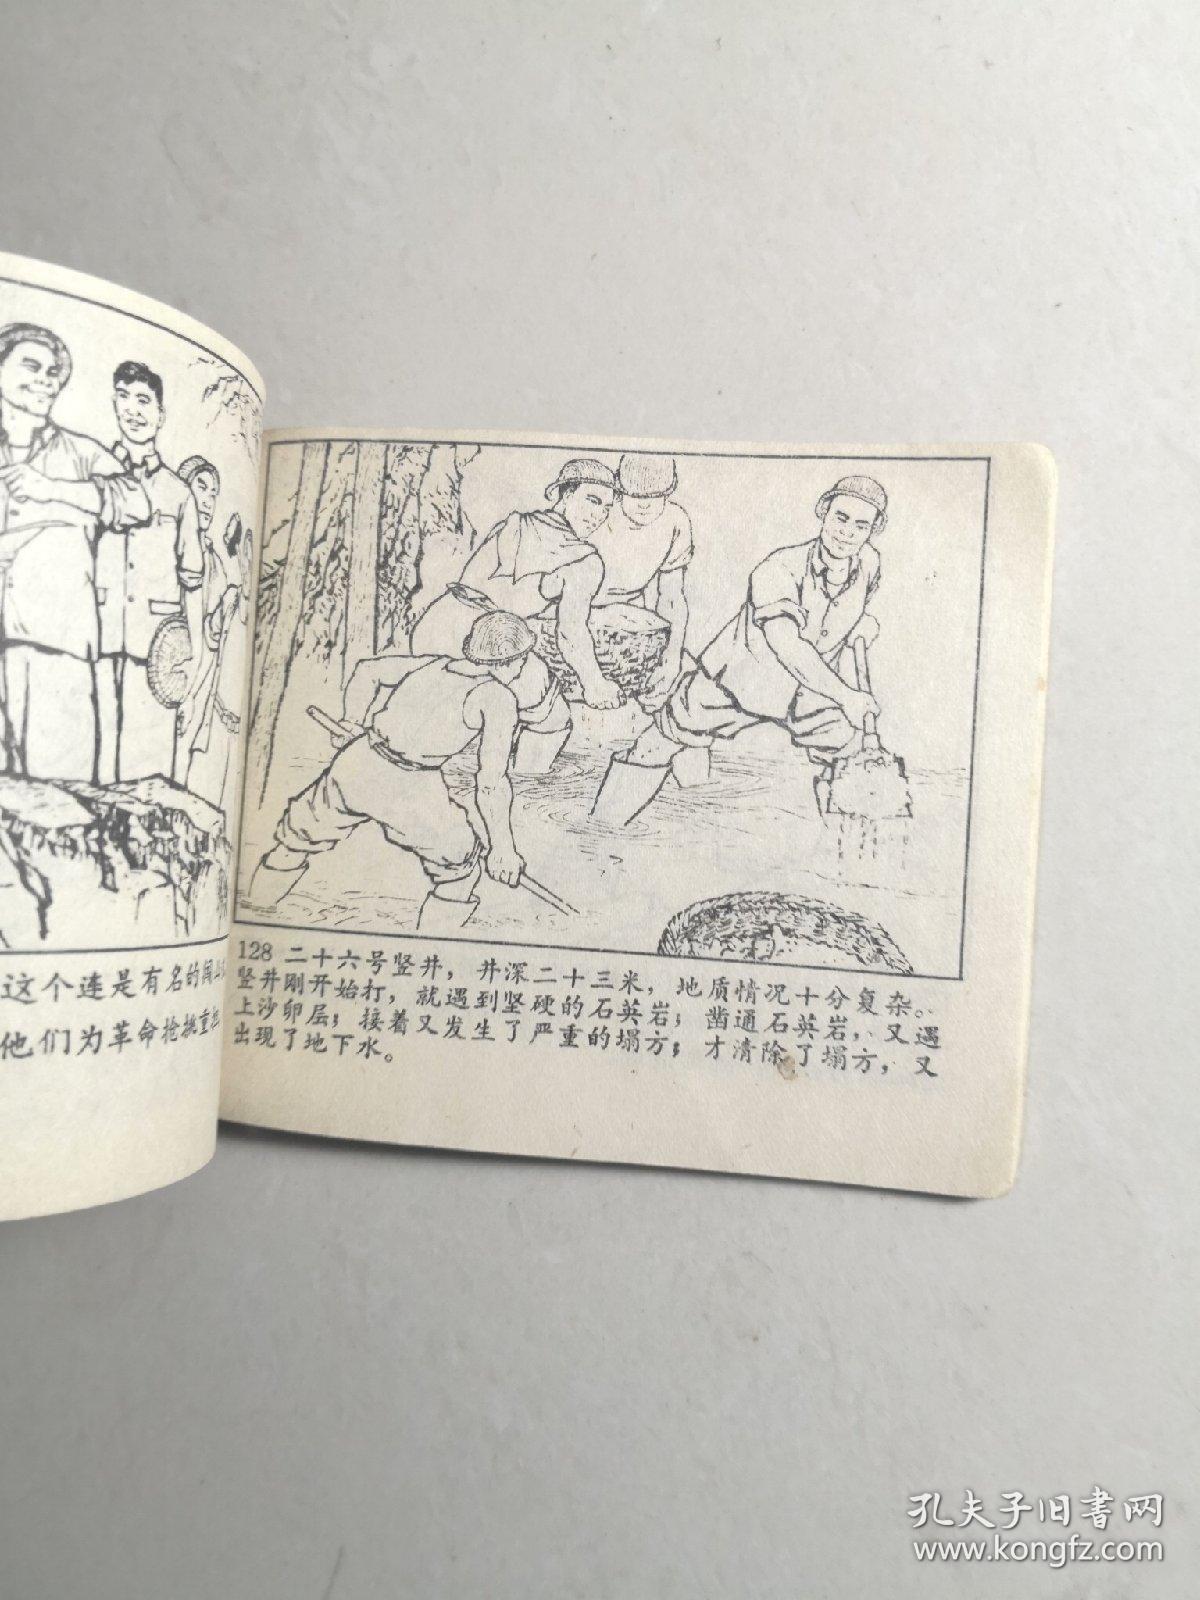 这个连是有名的闯
他们为革命抢挑重
128 二十六号竖井，井深二十三米，地质情况十分复杂。
竖井刚开始打，就遇到坚硬的石英岩；凿通石英岩，又遇
上沙卵层；接着又发生了严重的塌方；才清除了塌方，又
出现了地下水。
孔夫子旧书网
www.kongfz.com